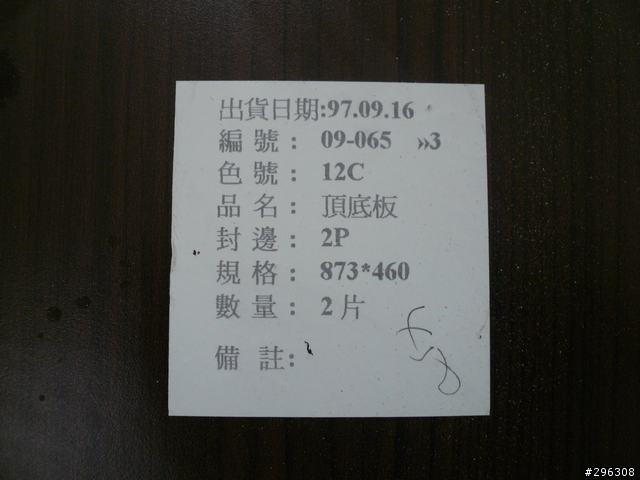 出貨日期:97.09.16
編號: 09-065 »3
色號: 12C
品名: 頂底板
封邊: 2P
規格: 873*460
數量: 2片
備註:
#296308